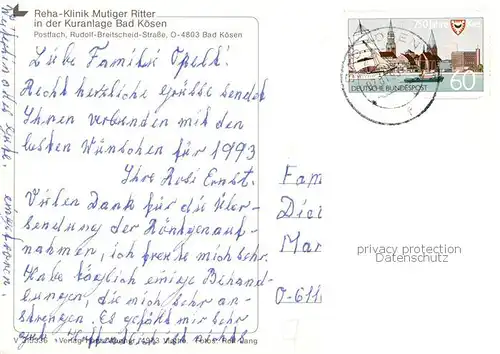 Reha-Klinik Mutiger Ritter
in der Kuranlage Bad Kösen
Postfach, Rudolf-Breitscheid-Straße, O-4803 Bad Kösen
Liebe Familie Opelt!
Recht herzliche Grüße sendet
Ihnen verbunden mit den
besten Wünschen für 1993
Ihre Rosi Ernst.
Vielen Dank für die Über-
sendung der Röntgenauf-
nahmen, ich freute mich sehr.
Habe täglich einige Behand-
lungen, die mich sehr an-
strengen. Es gefällt mir sehr
gut
Verlag
Fotos:
750 Jahre
60
DEUTSCHE BUNDESPOST
Fam
Die
Mar
O-611
privacy protection
Datenschutz